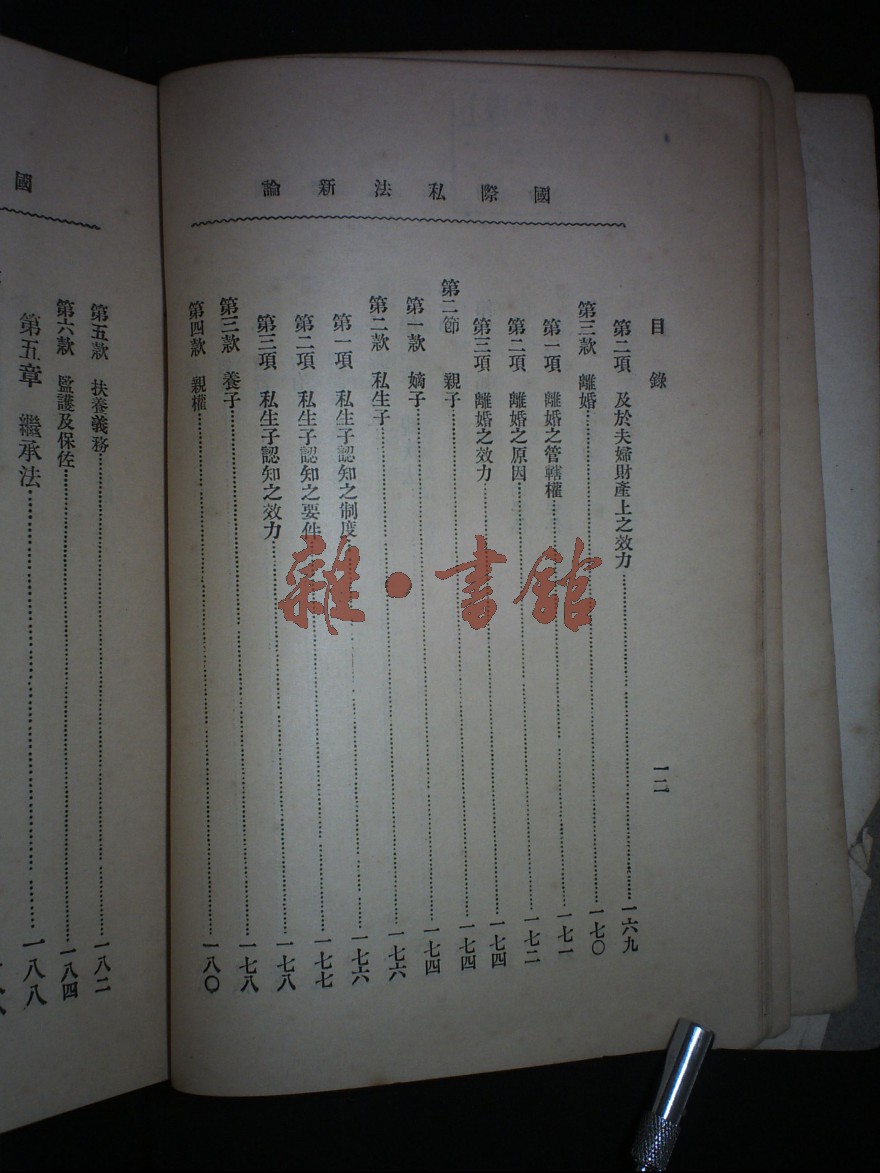 國際私法新論
目錄
一二
第二項 及於夫婦財產上之效力……一六九
第三款 離婚……一七〇
第一項 離婚之管轄權……一七一
第二項 離婚之原因……一七二
第三項 離婚之效力……一七四
第二節 親子……一七四
第一款 嫡子……一七四
第二款 私生子……一七六
第一項 私生子認知之制度……一七六
第二項 私生子認知之要件……一七七
第三項 私生子認知之效力……一七八
第三款 養子……一七八
第四款 親權……一八〇
國
第五款 扶養義務……一八二
第六款 監護及保佐……一八四
第五章 繼承法……一八八
雜·書館